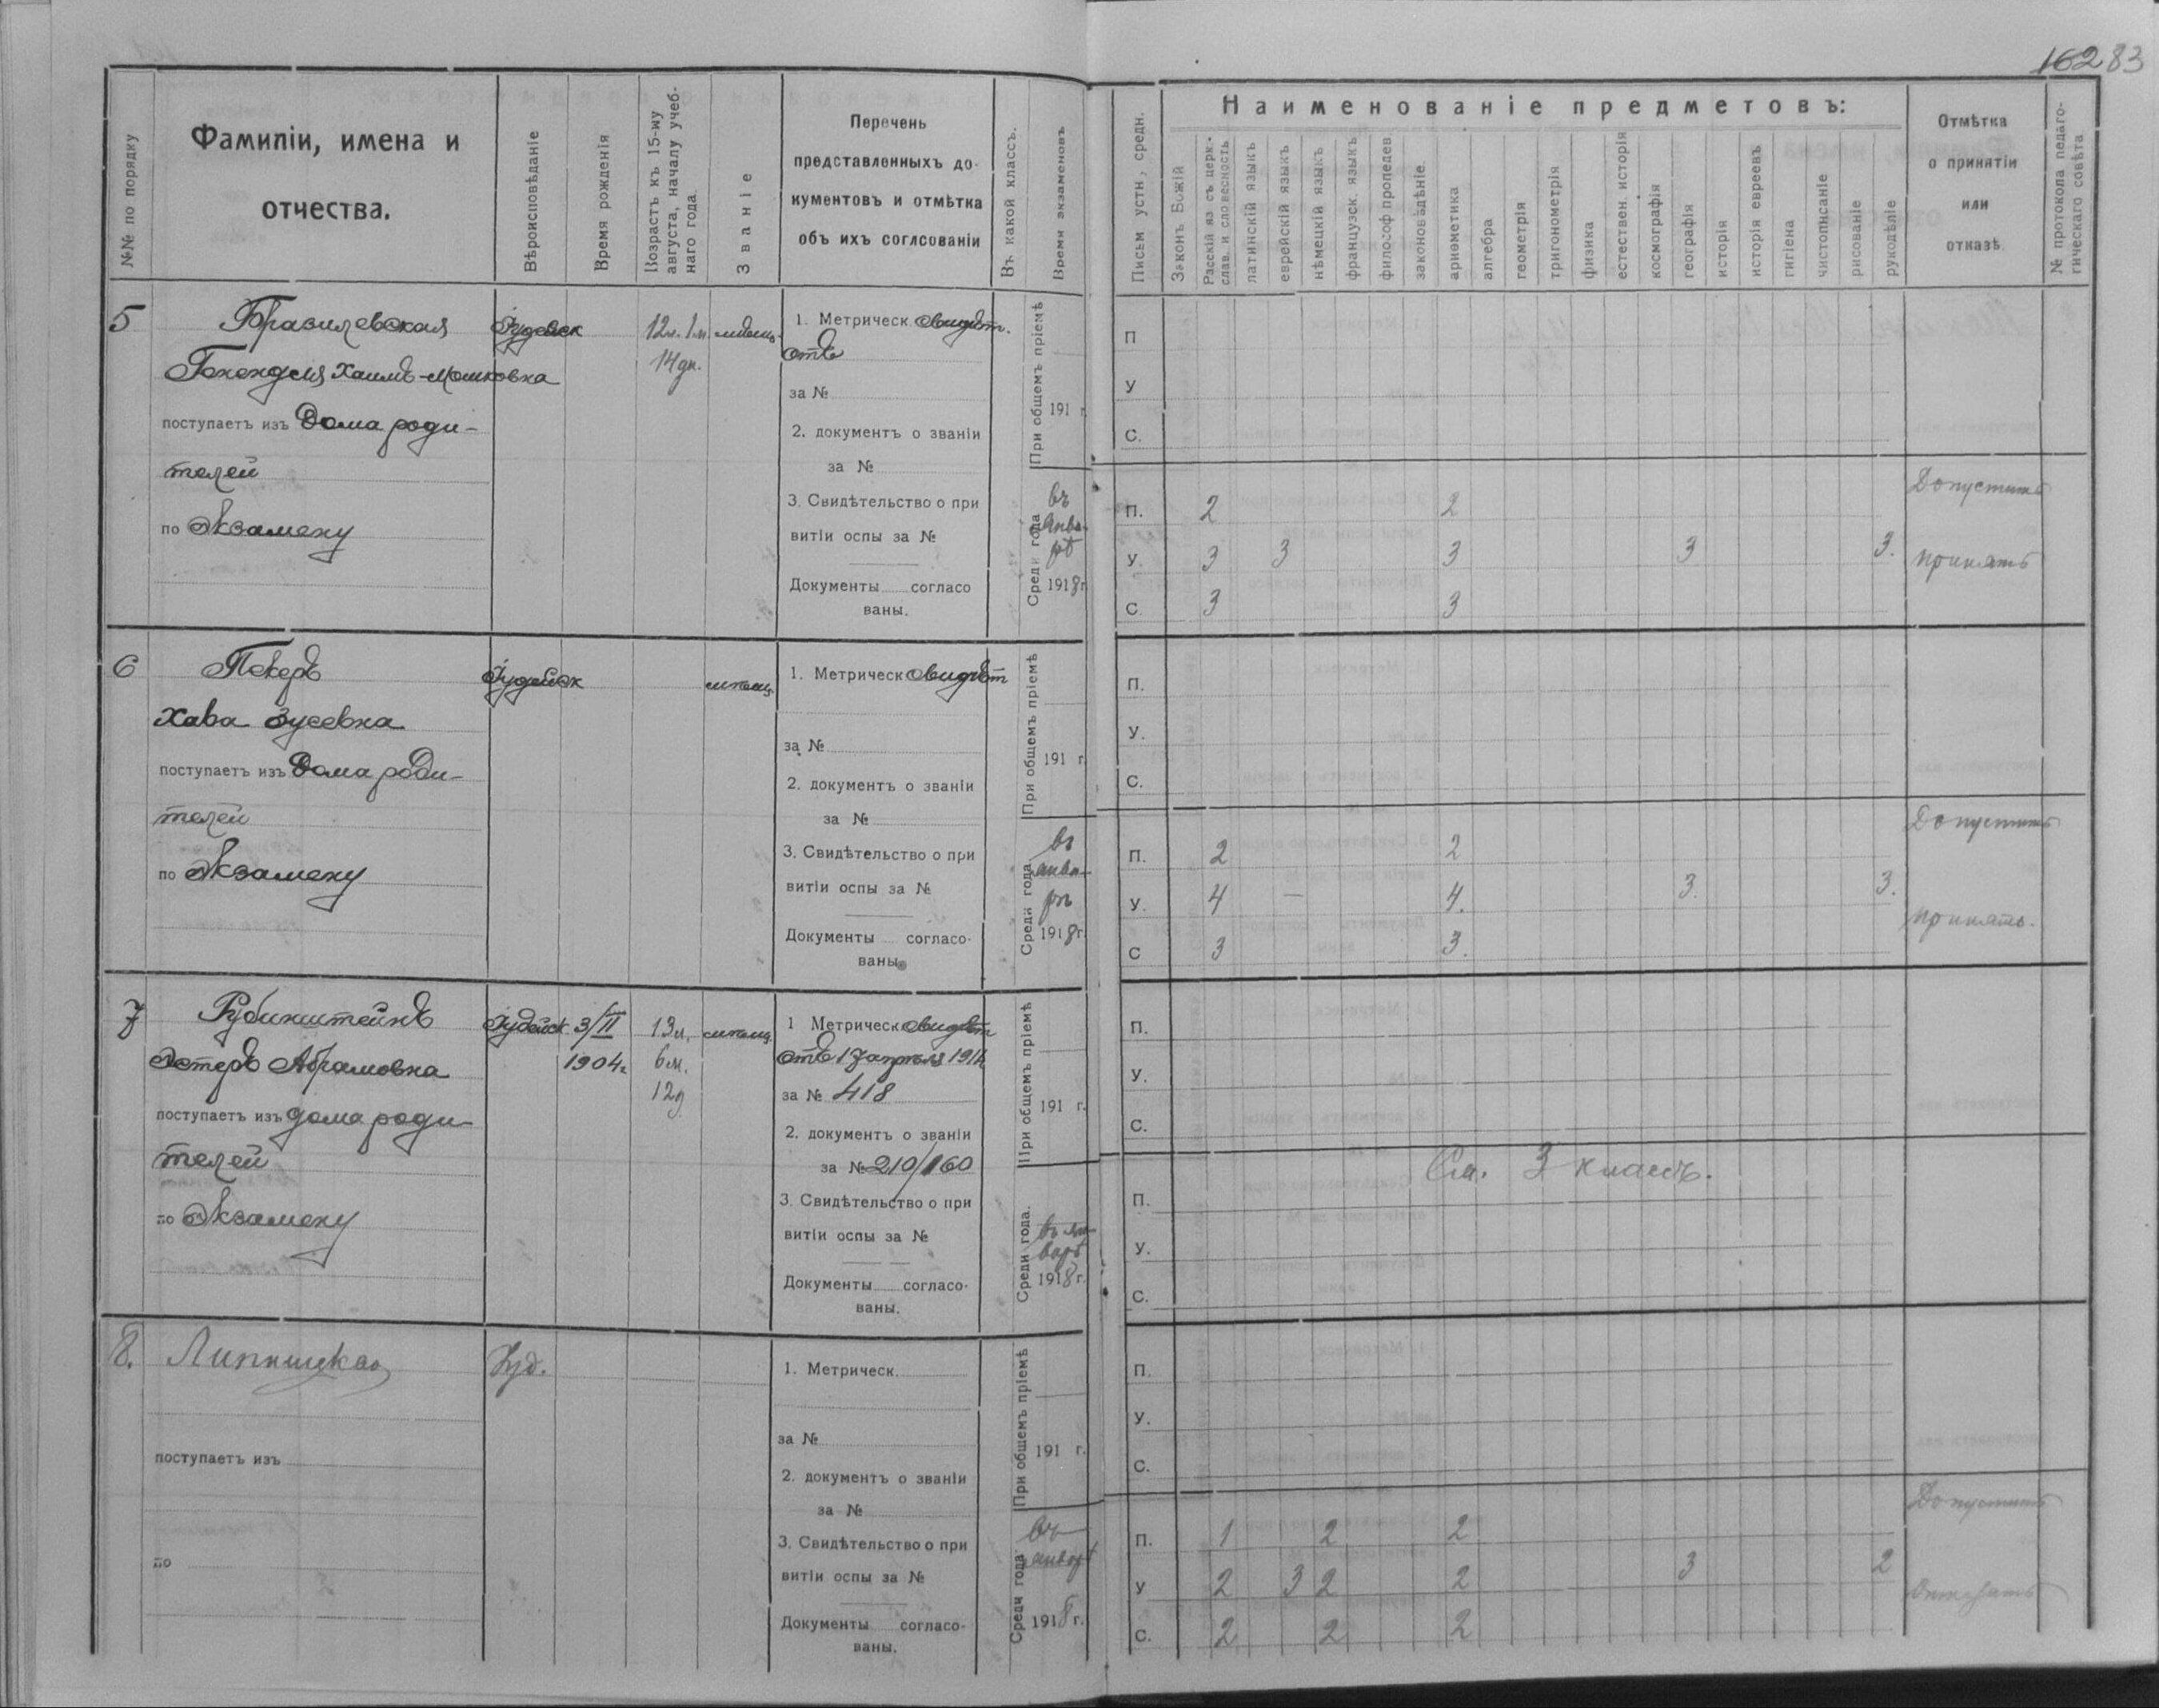 16283
№№ по порядку
Фамиліи, имена и
отчества.
Вѣроисповѣданіе
Время рожденія
Возрастъ къ 15-му
августа, началу учеб-
наго года.
Званіе
Перечень
представленныхъ до-
кументовъ и отмѣтка
объ ихъ соглсованіи
Въ какой классъ.
Время экзаменовъ
Письм устн, средн.
Наименованіе предметовъ:
Законъ Божій
Расскій яз съ церк.-
слав. и словесность
латинскій языкъ
еврейскій языкъ
нѣмецкій языкъ
французск. языкъ
философ пропедев
законовѣдѣніе.
ариѳметика
алгебра
геометрія
тригонометрія
физика
естествен. исторія
космографія
географія
исторія
исторія евреевъ
гигіена
чистописаніе
рисованіе
рукодѣліе
Отмѣтка
о принятіи
или
отказѣ.
№ протокола педаго-
гическаго совѣта
5
Бразилевская
Генендля Хаимъ-Мошковна
поступаетъ изъ дома роди-
телей
по экзамену
Іудейск
12л. 1м.
14 дн.
1. Метрическ. свидѣт.
отъ
за №
2. документъ о званіи
за №
3. Свидѣтельство о при
витіи оспы за №
Документы согласо
ваны.
При общемъ пріемѣ
191 г.
Среди года
въ
янва-
рѣ
1918 г.
П
У
С.
П. 2 2
У. 3 3 3 3 3.
С. 3 3
Допустить
принять
6
Пекеръ
Хава Зусевна
поступаетъ изъ дома роди-
телей
по экзамену
Іудейск
мѣщ.
1. Метрическ свидѣт
за №
2. документъ о званіи
за №
3. Свидѣтельство о при
витіи оспы за №
Документы согласо-
ваны.
При общемъ пріемѣ
191 г.
Среди года
въ
янва-
рѣ
1918 г.
П.
У.
С.
П. 2 2
У. 4 — 4. 3. 3.
С 3 3.
Допустить
принять.
7
Рубинштейнъ
Эстеръ Абрамовна
поступаетъ изъ дома роди-
телей
по экзамену
Іудейск
3/II
1904г.
13л.
6м.
12д
мѣщ.
1 Метрическ свидѣт
отъ 17 апрѣля 1914
за № 418
2. документъ о званіи
за № 210/160
3. Свидѣтельство о при
витіи оспы за №
Документы согласо-
ваны.
При общемъ пріемѣ
191 г.
Среди года.
въ ян-
варѣ
1918 г.
П.
У.
С.
См. 3 классъ.
П.
У.
С.
8.
Липницкая
поступаетъ изъ
по
Іуд.
1. Метрическ.
за №
2. документъ о званіи
за №
3. Свидѣтельство о при
витіи оспы за №
Документы согласо-
ваны.
При общемъ пріемѣ
191 г.
Среди года
въ
январѣ
1918 г.
П.
У.
С.
П. 1 2 2
У 2 3 2 2 3 2
С. 2 2 2
Допустить
Отказать